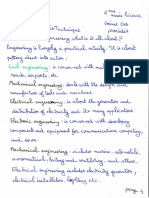 année licence
Génie des
procédés
Technique
Engineering what is it all about?
Engineering is largely a practical activity. It is about
putting ideas into action.
Civil engineering: is concerned with making bridges,
roads, airports, etc.
Mechanical engineering: deals with the design and
manufacture of tools and machines.
Electrical engineering: is about the generation and
distribution of electricity and its many applications.
Electronic engineering: is concerned with developing
components and equipment for communications, computing,
and so on.
Mechanical engineering: includes marine, automobile,
aeronautical, heating and ventilating, and others.
Electrical engineering includes electricity generation,
electrical installation, lighting etc.
page 1